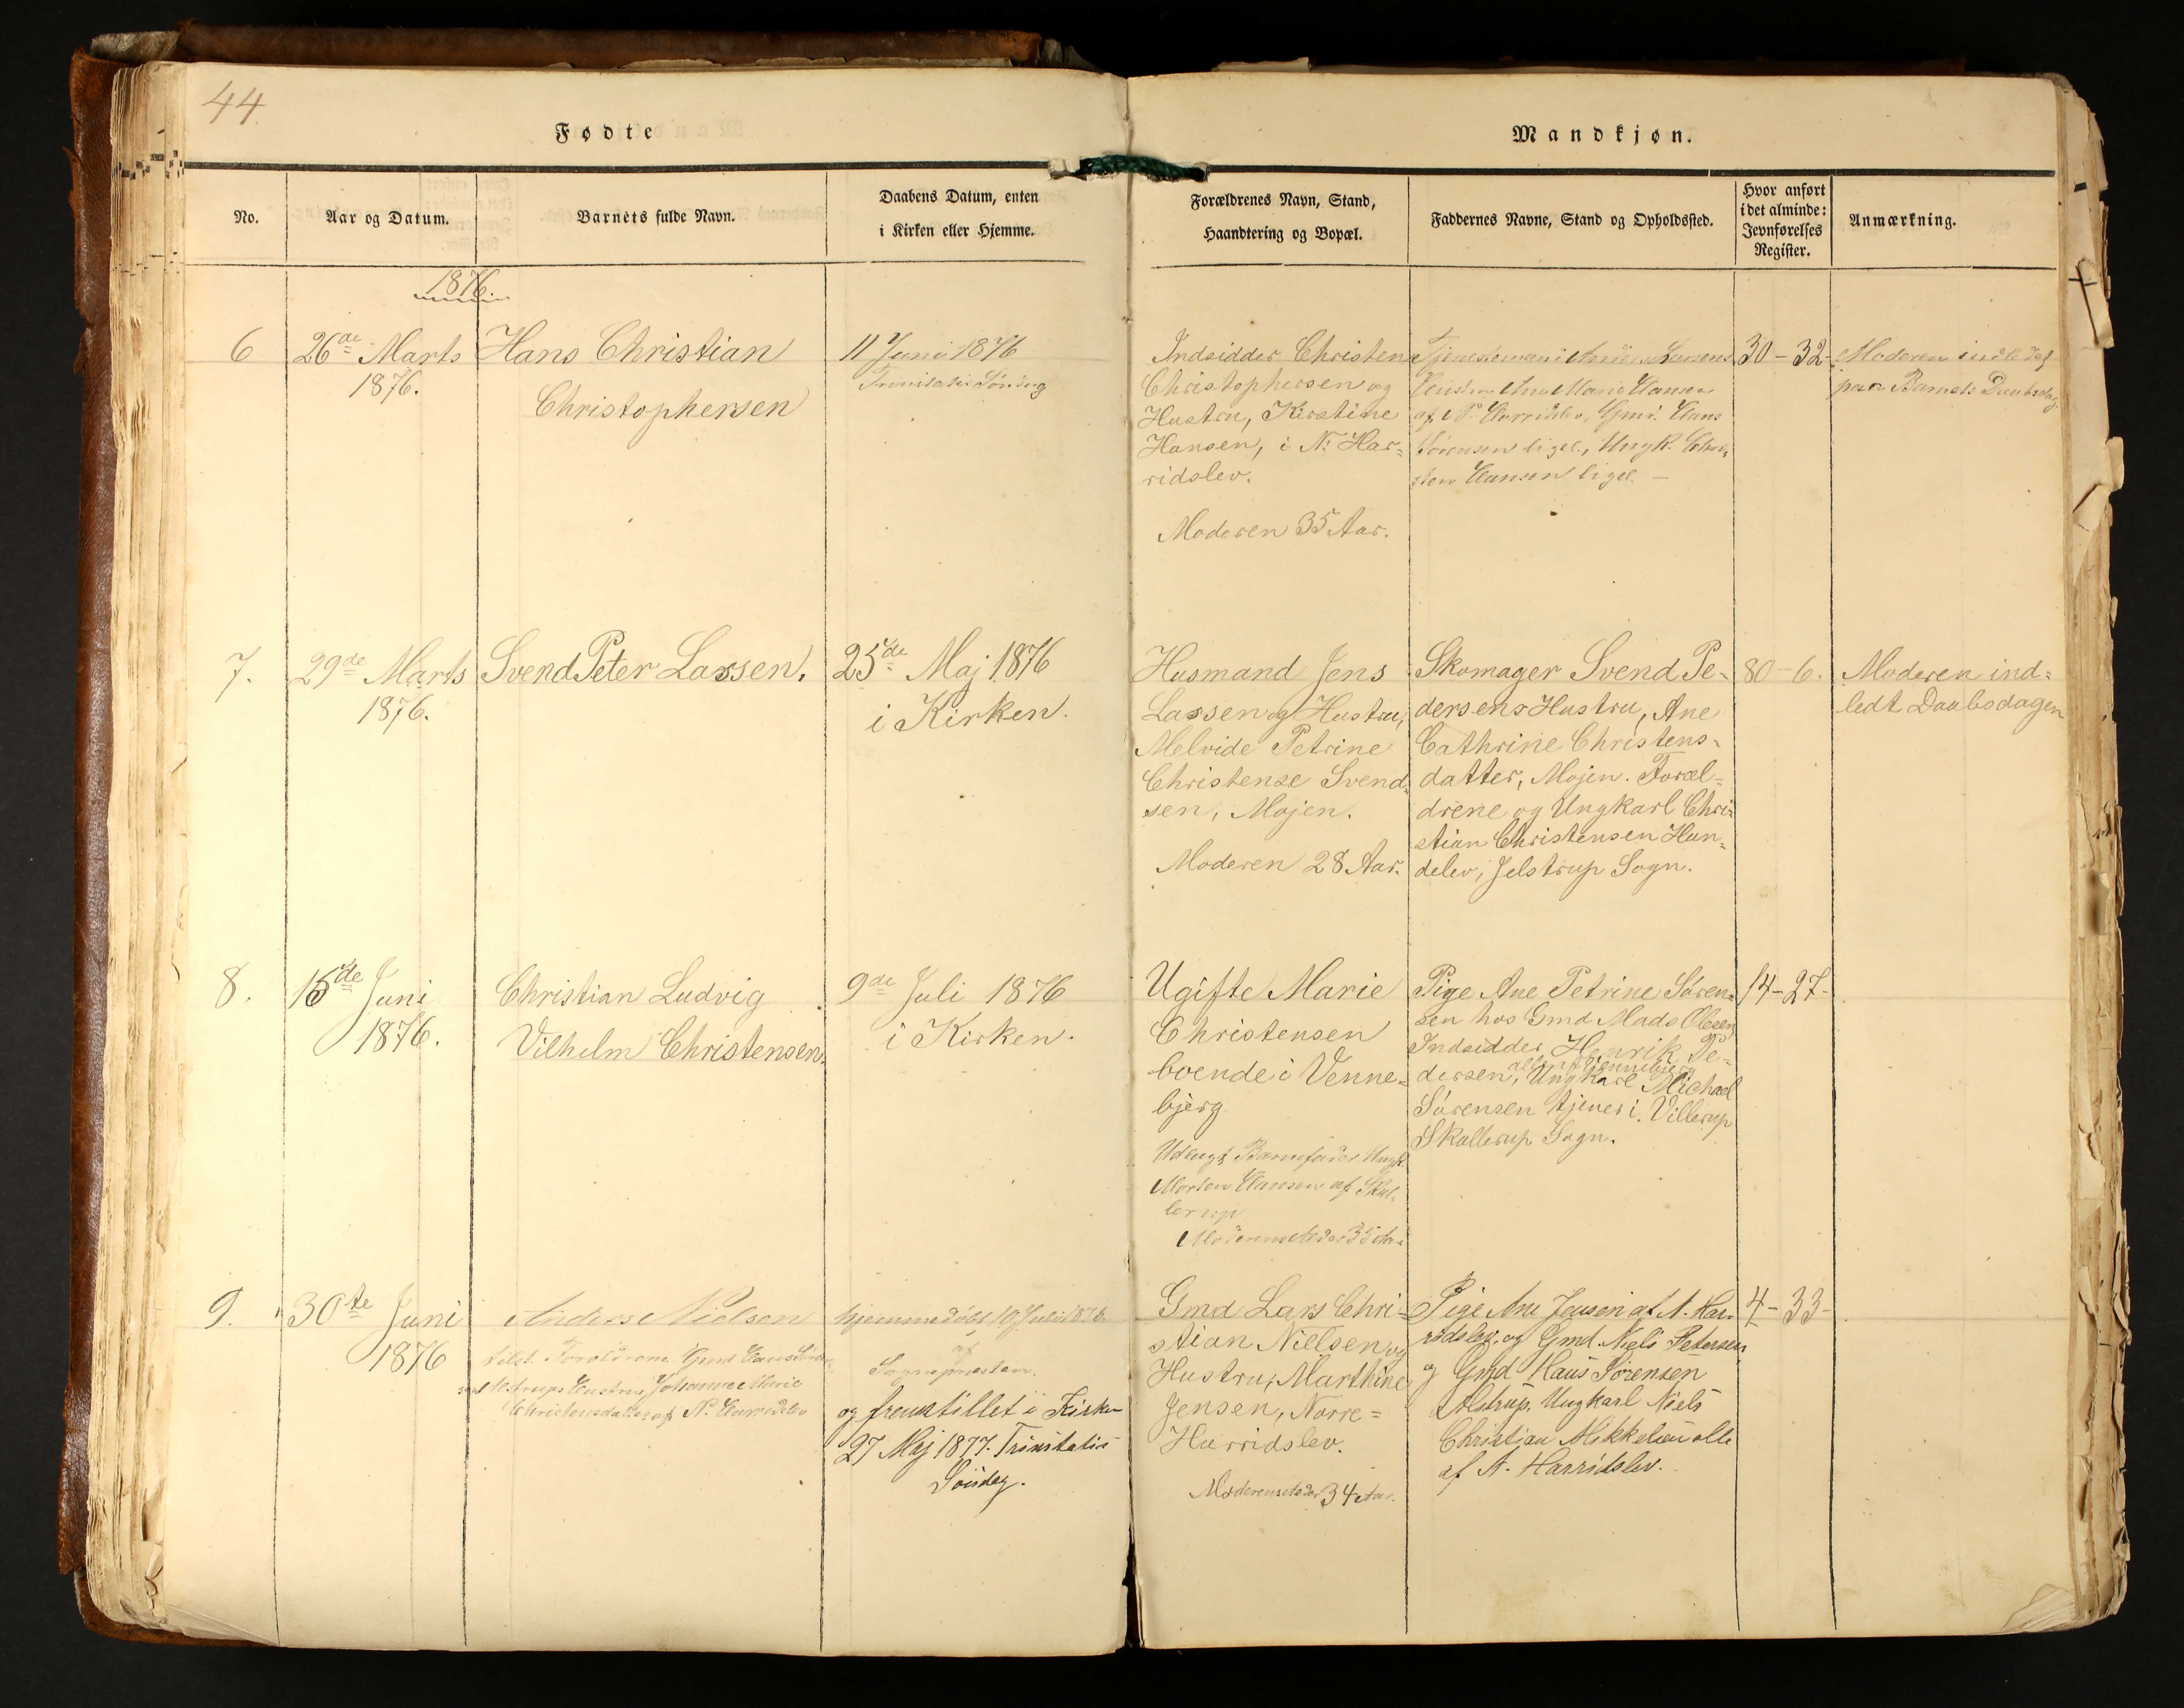 44.
Fødte
Mandkjøn.
No.
Aar og Datum.
Barnets fulde Navn.
Daabens Datum, enten
i Kirken eller Hjemme.
Forældrenes Navn, Stand,
Haandtering og Bopæl.
Faddernes Navne, Stand og Opholdssted.
Hvor anført
i det alminde:
Jevnførelses
Register.
Anmærkning.
1876.
6
26de Marts
1876.
Hans Christian
Christophersen
11 Juni 1876
Trinitatis Søndag
Indsidder Christen
Christophersen og
Hustru, Kirstine
Hansen, i N: Har=
ridslev.
Moderen 35 Aar.
Tjenestemand Larsens
Hustru Ane Marie Hansen
af N. Harridslev, Gmd. Hans
Sørensen ligel., Ungk. Chri=
sten Hansen ligel. —
30-32-
Moderen indledt
paa Barnets Daabsdag
7.
29de Marts
1876.
Svend Peter Lassen.
25de Maj 1876
i Kirken.
Husmand Jens
Lassen og Hustru,
Melvide Petrine
Christense Svend=
sen, Mojen.
Moderen 28 Aar.
Skomager Svend Pe-
dersens Hustru, Ane
Cathrine Christens-
datter, Mojen. Foræl=
drene og Ungkarl Chri=
stian Christensen Hun=
delev, Jelstrup Sogn.
80-6.
Moderen ind=
ledt Daabsdagen
8.
15de Juni
1876.
Christian Ludvig
Vilhelm Christensen.
9de Juli 1876
i Kirken.
Ugifte Marie
Christensen
boende i Venne=
bjerg
Udlagt Barnefader Ungk.
Morten Hansen af Skal=
lerup
Moderens Alder 35 Aar
Pige Ane Petrine Søren=
sen hos Gmd Mads Olesen
Indsidder Henrik Pe-
alle af Vennebjerg
dersen, Ungkarl Michael
Sørensen tjener i Villerup
Skallerup Sogn.
14-27-
9.
30te Juni
1876
Anders Nielsen
tilst. Forældrene Gmd Hans Søren=
sen Alstrups Hustru Johanne Marie
Christensdatter af N. Harridslev
hjemmedøbt 10 Juli 1876
af
Sognepræsten.
og fremstillet i Kirken
27 Maj 1877. Trinitatis
Søndag.
Gmd Lars Chri=
stian Nielsen og
Hustru, Marthine
Jensen, Nørre=
Harridslev.
Moderens Alder 34 Aar.
Pige Ane Jensen af N. Har=
ridslev, og Gmd. Niels Petersen
og Gmd Hans Sørensen
Alstrup. Ungkarl Niels
Christian Mikkelsen alle
af N. Harridslev.
4-33-